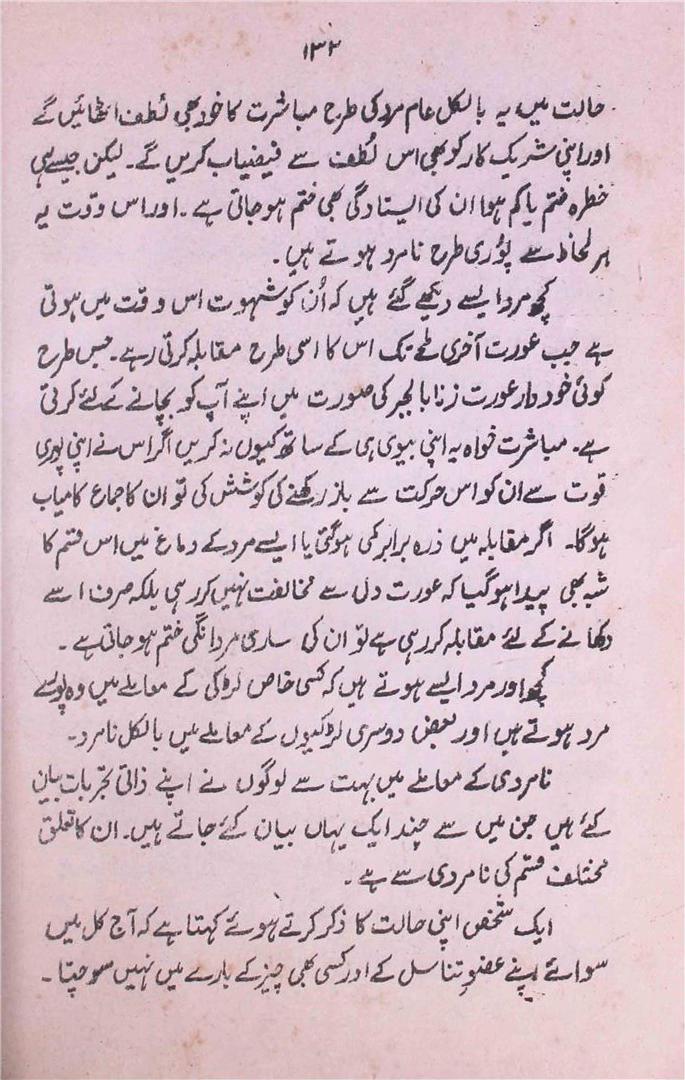 ۱۳۲
حالت میں یہ بالکل عام مرد کی طرح مباشرت کا خود بھی لُطف اٹھائیں گے
اور اپنی شریک کار کو بھی اس لُطف سے فیضیاب کریں گے۔ لیکن جیسے ہی
خطرہ ختم یا کم ہوا ان کی ایستادگی بھی ختم ہو جاتی ہے۔ اور اس وقت یہ
ہر لحاظ سے پوُری طرح نامرد ہوتے ہیں۔
کچھ مرد ایسے دیکھے گئے ہیں کہ اُن کو شہوت اس وقت میں ہوتی
ہے جب عورت آخری لمحے تک اس کا اسی طرح مقابلہ کرتی رہے۔ جس طرح
کوئی خوددار عورت زنا بالجبر کی صورت میں اپنے آپ کو بچانے کے لئے کرتی
ہے۔ مباشرت خواہ یہ اپنی بیوی ہی کے ساتھ کیوں نہ کریں اگر اس نے اپنی پوری
قوت سے ان کو اس حرکت سے باز رکھنے کی کوشش کی تو ان کا جماع کامیاب
ہوگا۔ اگر مقابلہ میں ذرہ برابر کمی ہوگئی یا ایسے مرد کے دماغ میں اس قسم کا
شبہ بھی پیدا ہوگیا کہ عورت دل سے مخالفت نہیں کر رہی بلکہ صرف اسے
دکھانے کے لئے مقابلہ کر رہی ہے تو ان کی ساری مردانگی ختم ہو جاتی ہے۔
کچھ اور مرد ایسے ہوتے ہیں کہ کسی خاص لڑکی کے معاملے میں وہ پوُرے
مرد ہوتے ہیں اور بعض دوسری لڑکیوں کے معاملے میں بالکل نامرد۔
نامردی کے معاملے میں بہت سے لوگوں نے اپنے ذاتی تجربات بیان
کئے ہیں جن میں سے چند ایک یہاں بیان کئے جاتے ہیں۔ ان کا تعلق
مختلف قسم کی نامردی سے ہے۔
ایک شخص اپنی حالت کا ذکر کرتے ہوئے کہتا ہے کہ آج کل میں
سوائے اپنے عضوِ تناسل کے اور کسی بھی چیز کے بارے میں نہیں سوچتا۔